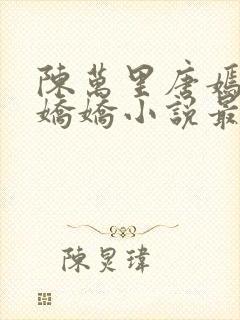 陳萬里唐嫣
嬌嬌小說最
陳炅瑋